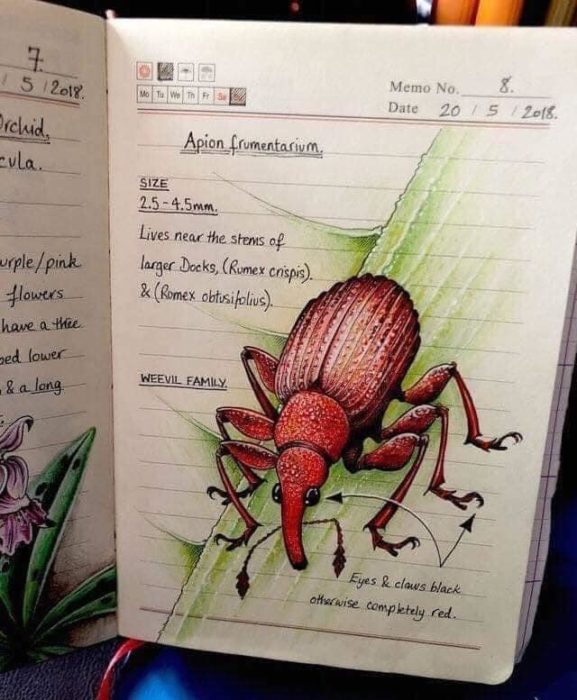 7.
/ 5 / 2018.
Orchid,
cula.
urple/pink
flowers
have a three
ped lower
, & a long
Memo No. 8.
Mo Tu We Th Fr Sa
Date 20 / 5 / 2018.
Apion frumentarium.
SIZE
2.5-4.5mm.
Lives near the stems of
larger Docks, (Rumex crispis).
& (Romex obtusifolius).
WEEVIL FAMILY.
Eyes & claws black
otherwise completely red.